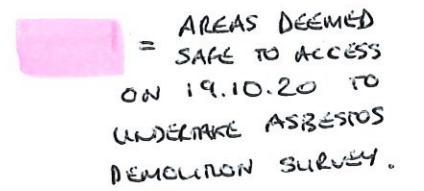 = AREAS DEEMED
SAFE TO ACCESS
ON 19.10.20 TO
UNDERTAKE ASBESTOS
DEMOLITION SURVEY.